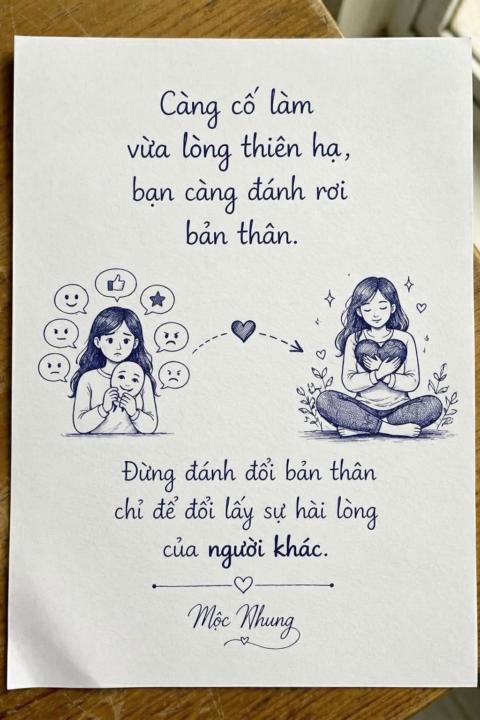 Càng cố làm
vừa lòng thiên hạ,
bạn càng đánh rơi
bản thân.
Đừng đánh đổi bản thân
chỉ để đổi lấy sự hài lòng
của người khác.
Mộc Nhung